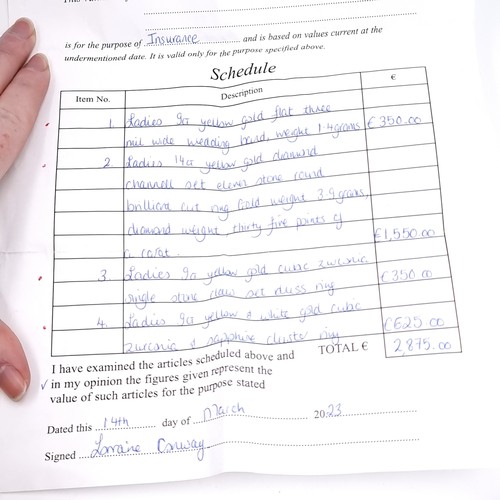 is for the purpose of Insurance and is based on values current at the
undermentioned date. It is valid only for the purpose specified above.
Schedule
Item No. Description €
1. Ladies 9ct yellow gold flat three
mil wide wedding band, weight 1.4grams €350.00
2. Ladies 14ct yellow gold diamond
channell set eleven stone round
brilliant cut ring Gold weight 3.9grams,
diamond weight, thirty five points of
a carat. €1,550.00
3. Ladies 9ct yellow gold cubic zirconia
single stone claw set dress ring €350.00
4. Ladies 9ct yellow & white gold cubic
zirconia & sapphire cluster ring €625.00
TOTAL € 2875.00
I have examined the articles scheduled above and
in my opinion the figures given represent the
value of such articles for the purpose stated
Dated this 14th day of March 2023
Signed Lorraine Conway